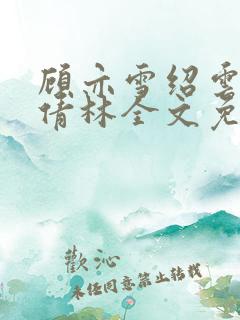 顾亦雪绍云
倩林全文免
歡沁
未经同意禁止转载